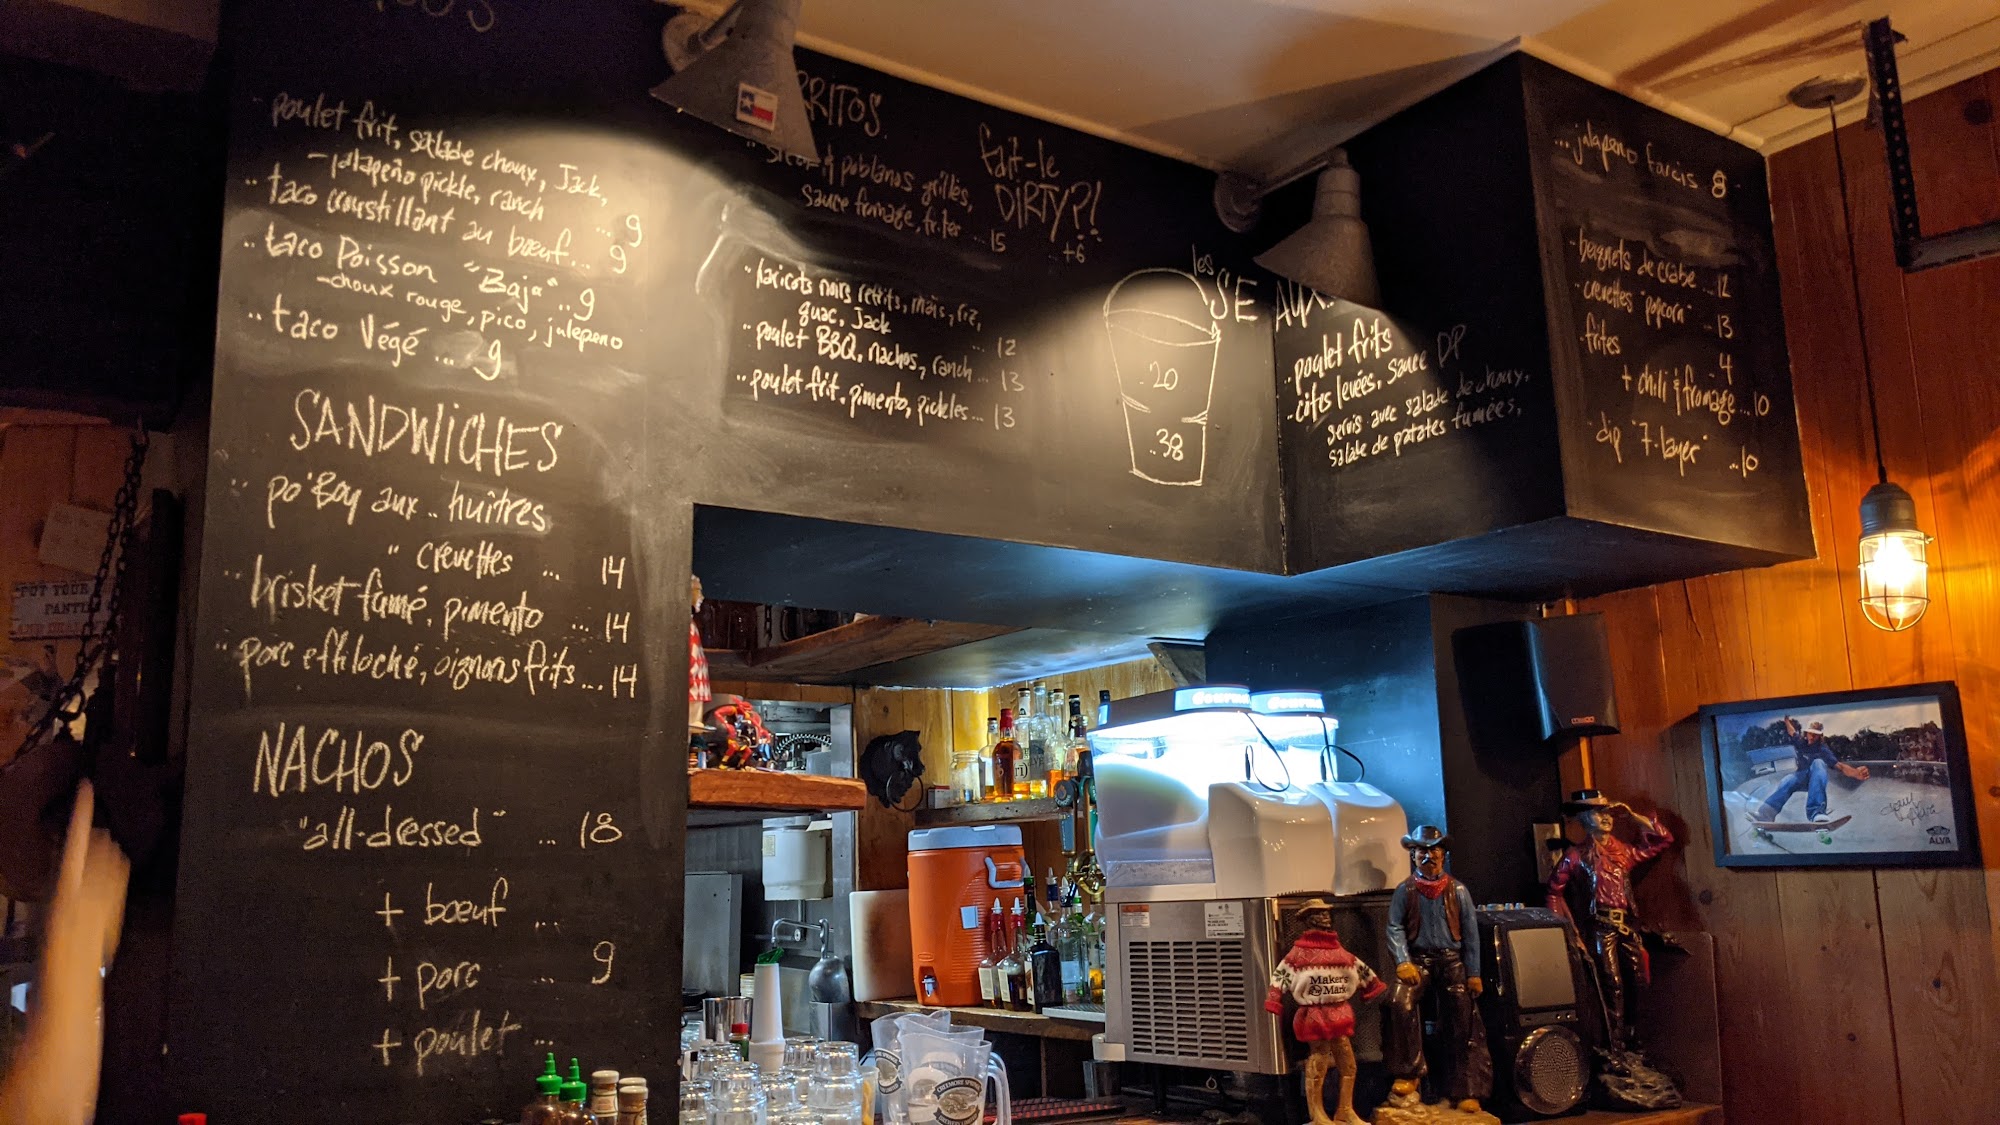 poulet frit, salade choux, Jack,
- jalapeño pickle, ranch ... 9
.. taco croustillant au bœuf... 9
.. taco Poisson "Baja" .. 9
- choux rouge, pico, jalepeno
.. taco Végé ... 9
SANDWICHES
.. po'Boy aux .. huîtres
" crevettes ... 14
.. brisket fumé, pimento ... 14
.. porc effiloché, oignons frits ... 14
NACHOS
"all-dressed" ... 18
+ bœuf ...
+ porc ... 9
+ poulet ...
RRITOS
& poblanos grillés,
sauce fromage, frites ... 15
fait-le
DIRTY?!
+6
.. haricots noirs refrits, maïs, riz,
guac, Jack ... 12
.. poulet BBQ, nachos, ranch ... 13
.. poulet frit, pimento, pickles... 13
.20
.38
les
SE AUX
.. poulet frits
.. côtes levées, sauce DP
servis avec salade de choux,
salade de patates fumées,
... jalapeno farcis 8
.. beignets de crabe ... 12
.. crevettes "popcorn" .. 13
. frites - 4
+ chili & fromage ... 10
.. dip "7-layer" ... 10
Maker's
Mark
CREEMORE SPRINGS
ALVA